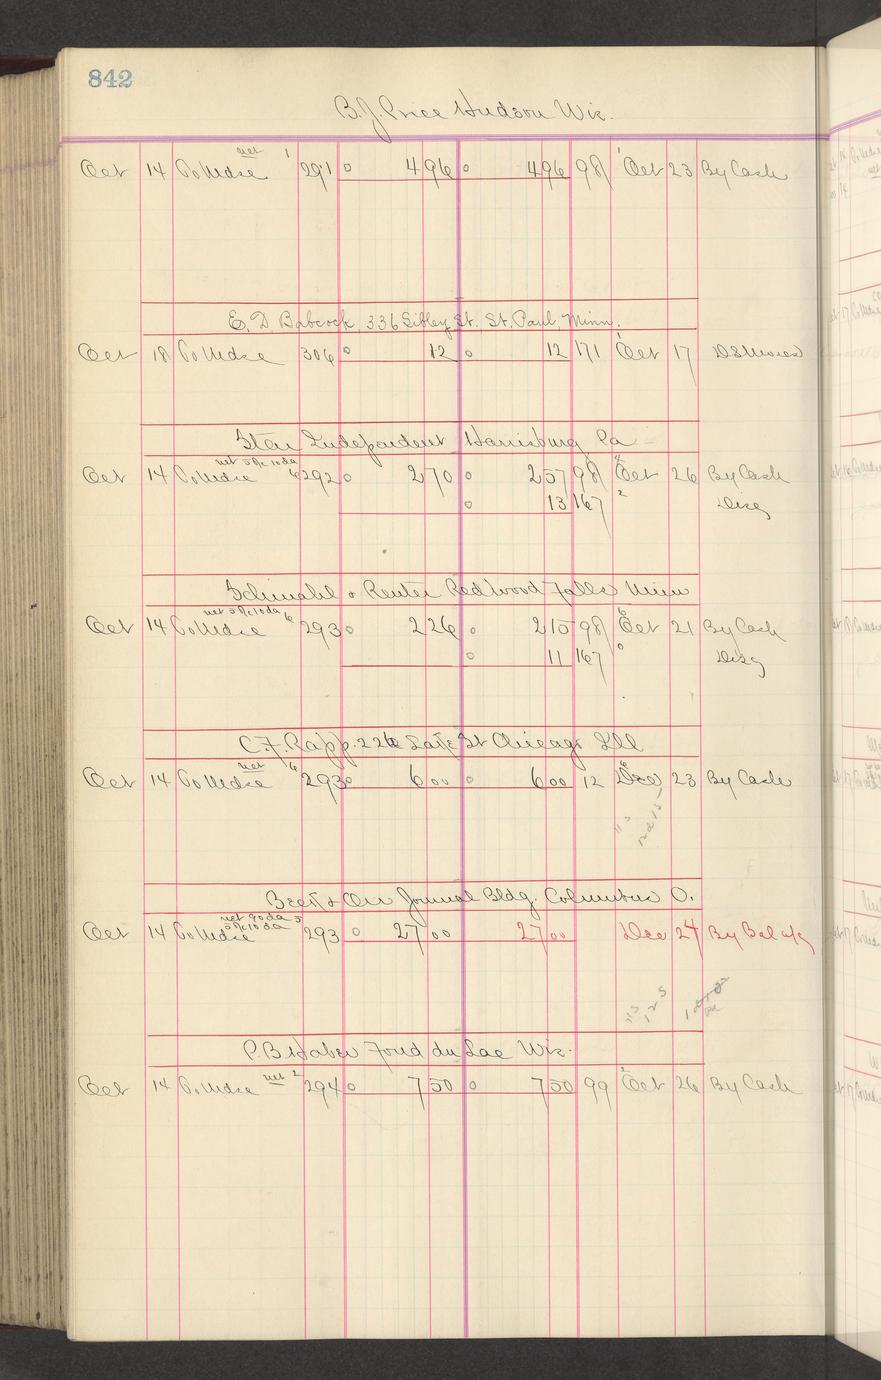 842
B.J. Price Hudson Wis.
net 1
Oct 14 To Mdse 291 0 4 96 0 4 96 98 1 Oct 23 By Cash
E. D. Babcock, 336 Sibley St. St. Paul, Minn.
Oct 18 To Mdse 306 0 12 0 12 171 1 Oct 17
Star Independent Harrisburg Pa
net 5% 10 da
Oct 14 To Mdse 6 292 0 2 70 0 2 57 98 Oct 26 By Cash
0 13 167 2 Disc
& Reuter Redwood Falls Minn
net 5% 10 da 6
Oct 14 To Mdse 293 0 2 26 0 2 15 98 Oct 21 By Cash
0 11 167 Disc
C.F. Rapp. 226 LaSt Chicago Ill
net 6
Oct 14 To Mdse 293 0 6 00 0 6 00 12 Dec 23 By Cash
& Orr Journal Bldg. Columbus O.
net 90 da 5
5% 10 da
Oct 14 To Mdse 293 0 27 00 27 00 Dec 24 By Bal
P.B. Haber Fond du Lac Wis.
net 2
Oct 14 To Mdse 294 0 7 50 0 7 50 99 2 Oct 26 By Cash